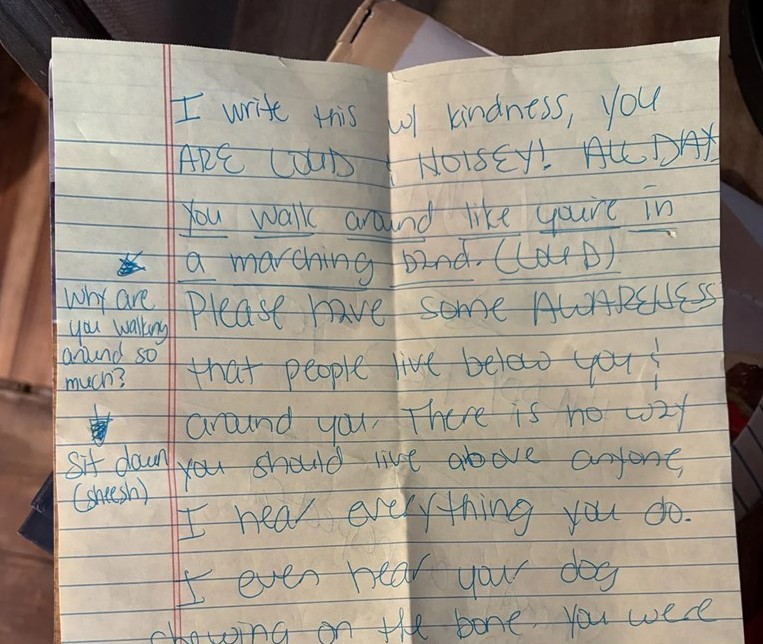 I write this w/ kindness, you
ARE LOUD & NOISEY! ALL DAY
You walk around like you're in
a marching band. (LOUD)
Please have some AWARENESS
that people live below you &
around you. There is no way
you should live above anyone,
I hear everything you do.
I even hear your dog
chewing on the bone. You were
Why are
you walking
around so
much?
Sit down
(sheesh)